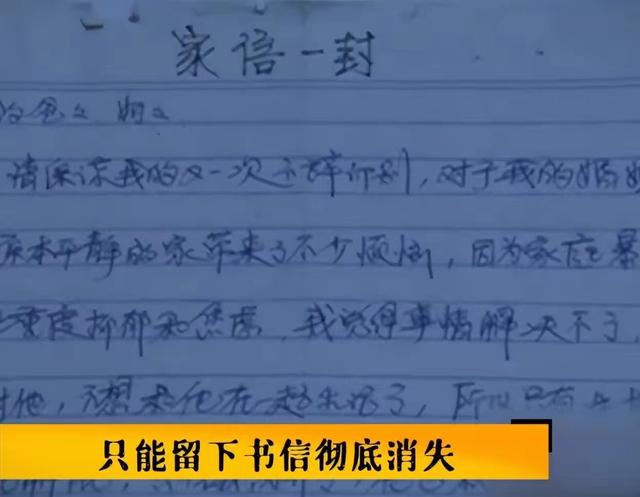 家信一封
的爸爸 妈妈
请原谅我的又一次不辞而别，对于我的婚姻
原本平静的家带来了不少烦恼，因为家庭暴
重度抑郁和焦虑，我觉得事情解决不了，
对他，不想和他在一起生活了，所以只有
只能留下书信彻底消失